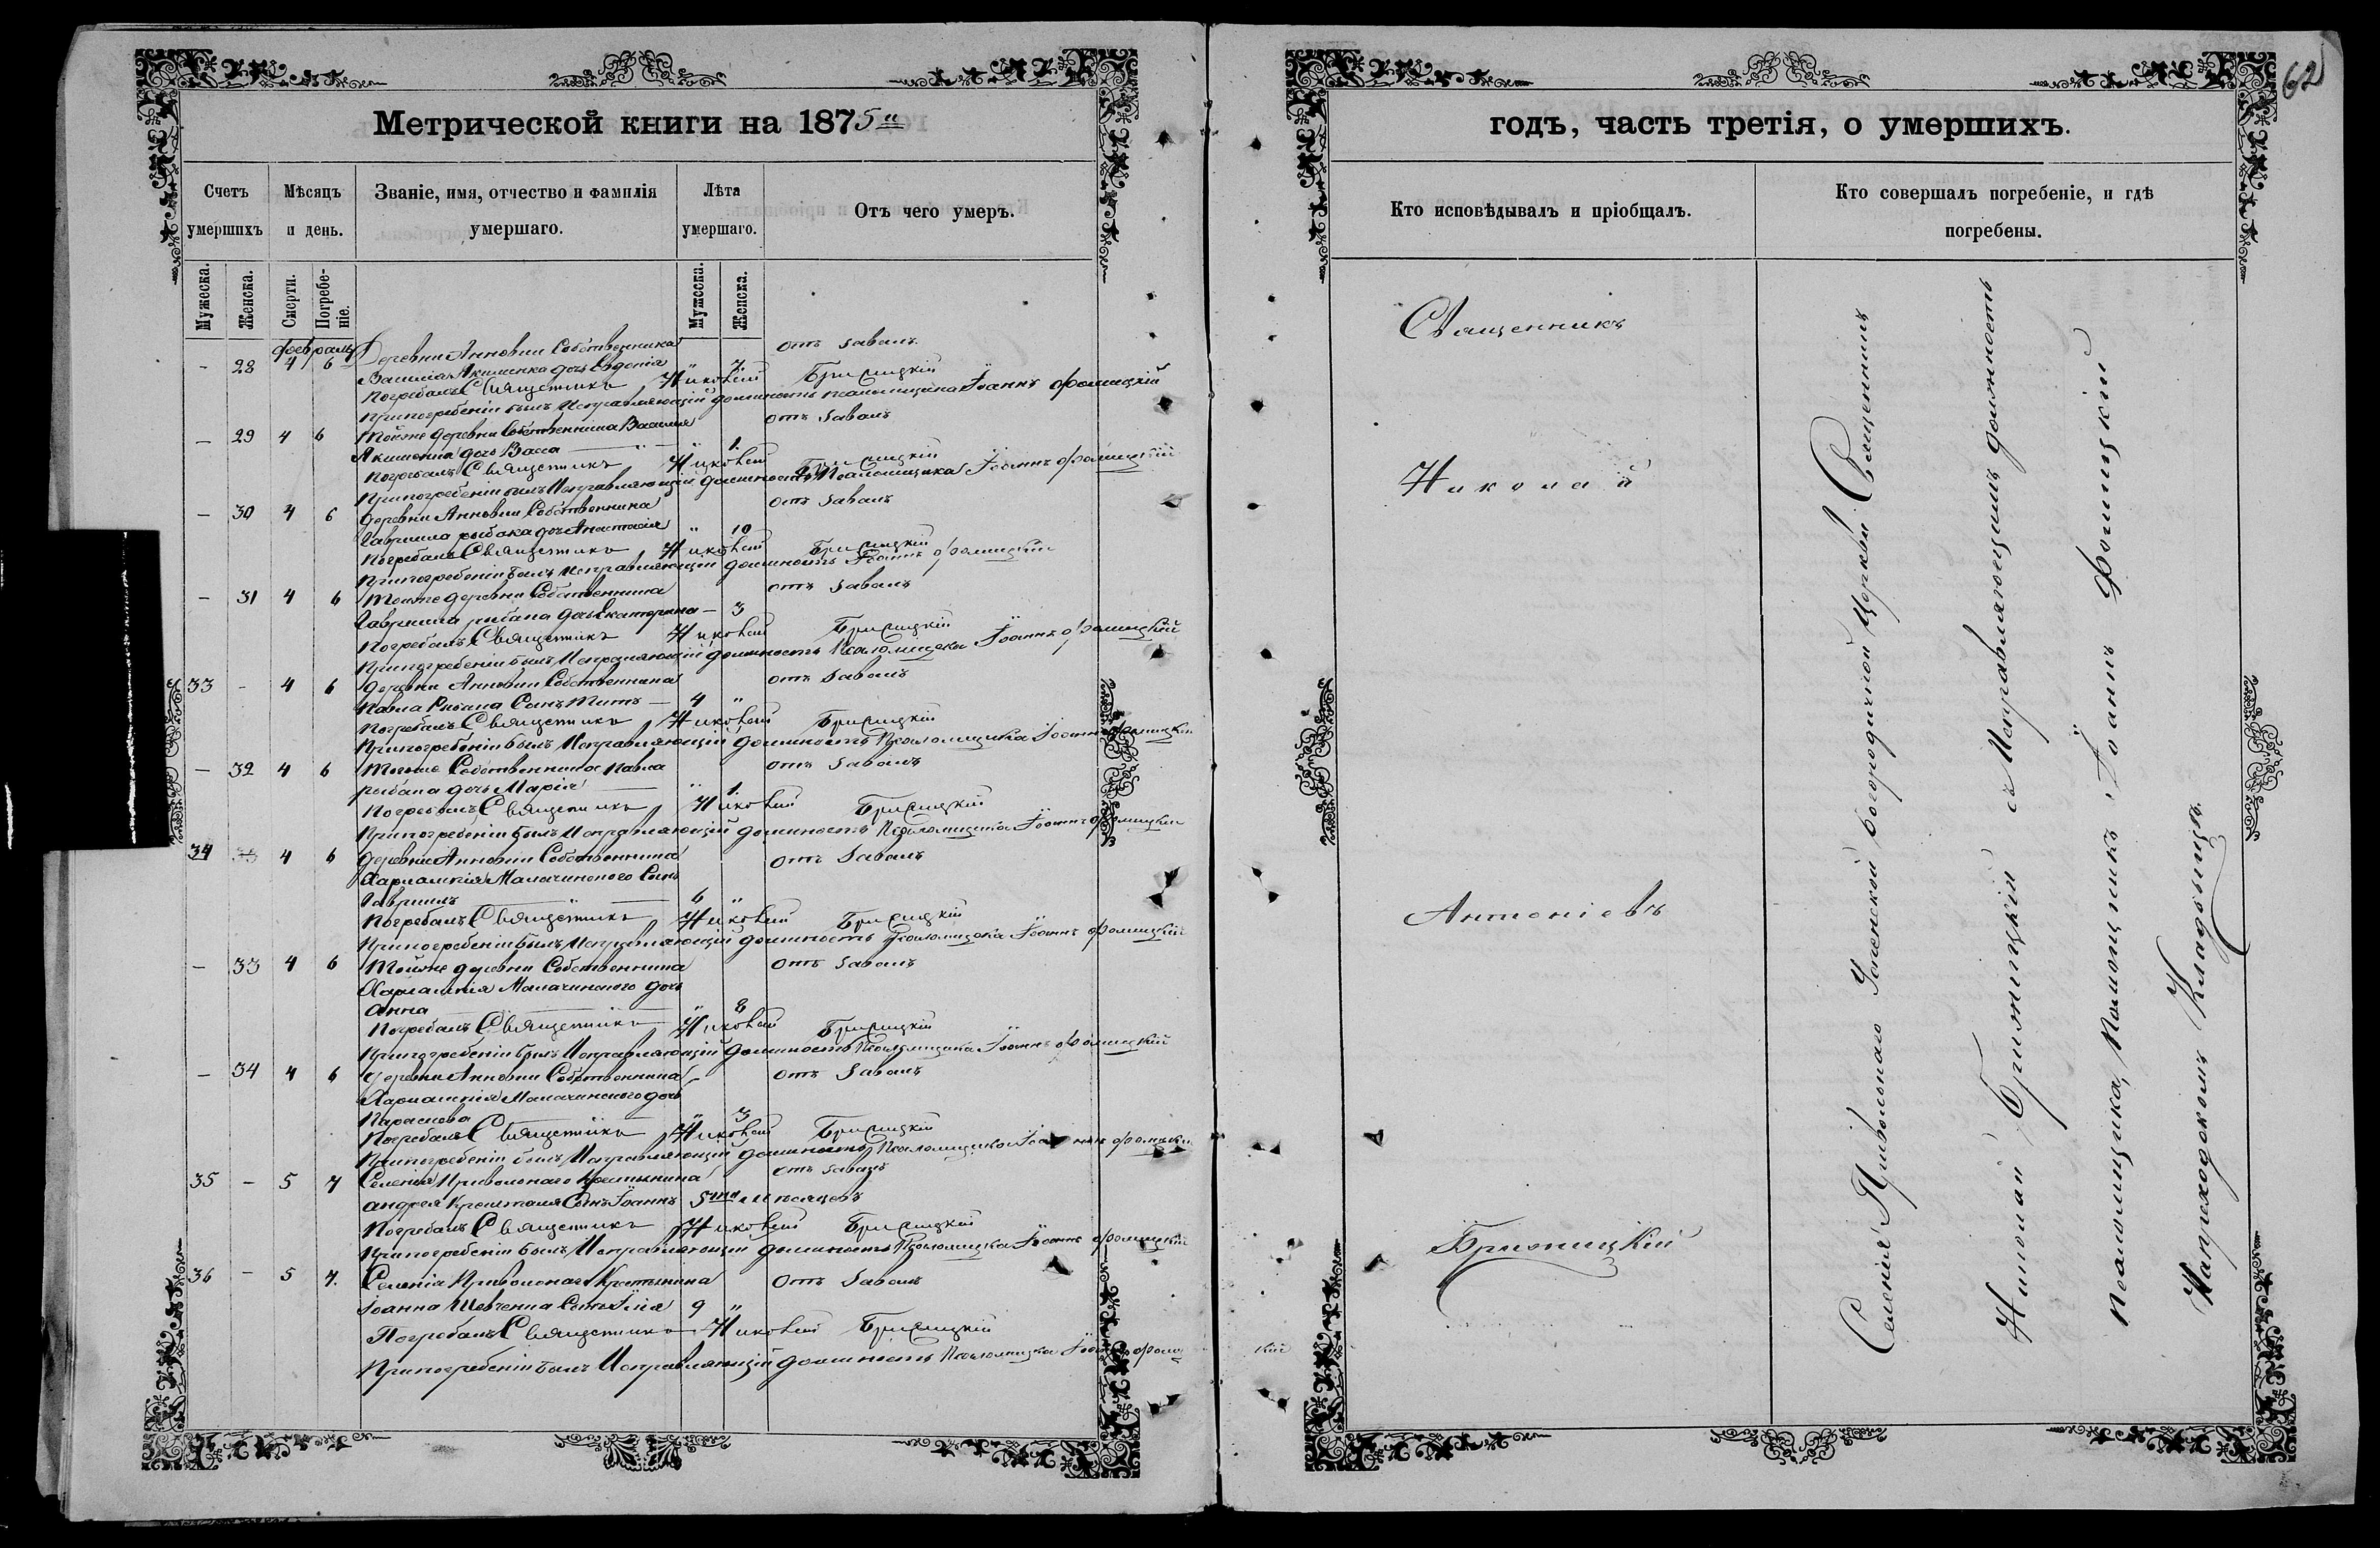 Метрической книги на 1875й
Счетъ умершихъ
Мѣсяцъ и день.
Званіе, имя, отчество и фамилія умершаго.
Лѣта умершаго.
Отъ чего умеръ.
Мужеска. Женска. Смерти. Погребеніе. Мужеска. Женска.
февраль
Деревни Анновки Собственника отъ Жабовъ
- 28 4 6 Василія Акименка дочь Евдокія 7
Погребалъ Священникъ Николай Бржицкій
При погребеніи былъ Исправляющій должность псаломщика Іоаннъ Фомицкій
— 29 4 6 Тойже деревни Собственника Василія отъ Жабовъ
Акименка дочь Васса " 1.
Погребалъ Священникъ Николай Бржицкій
При погребеніи былъ Исправляющій должность Псаломщика Іоаннъ Фомицкій
— 30 4 6 Деревни Анновки Собственника отъ Жабовъ
Гавриила рыбака дочь Анастасія " 10
Погребалъ Священникъ Николай Бржицкій
При погребеніи былъ Исправляющій должность Іоаннъ Фомицкій
— 31 4 6 Тойже деревни Собственника отъ Жабовъ
Гавриила рыбака дочь Екатерина — 3
Погребалъ Священникъ Николай Бржицкій
При погребеніи былъ Исправляющій должность Псаломщика Іоаннъ Фомицкій
33 - 4 6 Деревни Анновки Собственника отъ Жабовъ
Павла Рыбака Сынъ Титъ — 4 "
Погребалъ Священникъ Николай Бржицкій
При погребеніи былъ Исправляющій должность Псаломщика Іоаннъ Фомицкій
— 32 4 6 Тойже Собственника Павла отъ Жабовъ
рыбака дочь Марія " 1.
Погребалъ Священникъ Николай Бржицкій
При погребеніи былъ Исправляющій должность Псаломщика Іоаннъ Фомицкій
34 33 4 6 Деревни Анновки Собственника отъ Жабовъ
Харлампія Малачинского Сынъ
Гавриилъ 6 "
Погребалъ Священникъ Николай Бржицкій
При погребеніи былъ Исправляющій должность Псаломщика Іоаннъ Фомицкій
— 33 4 6 Тойже деревни Собственника отъ Жабовъ
Харлампія Малачинского дочь
Анна " 8
Погребалъ Священникъ Николай Бржицкій
При погребеніи былъ Исправляющій должность Псаломщика Іоаннъ Фомицкій
— 34 4 6 Деревни Анновки Собственника отъ Жабовъ
Харлампія Малачинского дочь
Параскева " 3
Погребалъ Священникъ Николай Бржицкій
При погребеніи былъ Исправляющій должность Псаломщика Іоаннъ Фомицкій
35 — 5 7 Селенія Привольнаго Крестьянина отъ Жабовъ
Андрея Сынъ Іоаннъ 5ти мѣсяцевъ
Погребалъ Священникъ Николай Бржицкій
При погребеніи былъ Исправляющій должность Псаломщика Іоаннъ Фомицкій
36 — 5 7. Селенія Привольнаго Крестьянина Отъ Жабовъ
Іоанна Шевченка Сынъ Илія 9 "
Погребалъ Священникъ Николай Бржицкій
При погребеніи былъ Исправляющій должность Псаломщика Іоаннъ Фомицкій
62
годъ, часть третія, о умершихъ.
Кто исповѣдывалъ и пріобщалъ.
Кто совершалъ погребеніе, и гдѣ погребены.
Священникъ
Николай
Антоніевъ
Бржицкій
Селенія Привольнаго Успенской Богородичной Церкви Священникъ
Николай Бржицкій съ Исправляющимъ должность
Псаломщика, Помощникъ Іоаннъ Фомицкій
На приходскомъ Кладбищѣ.